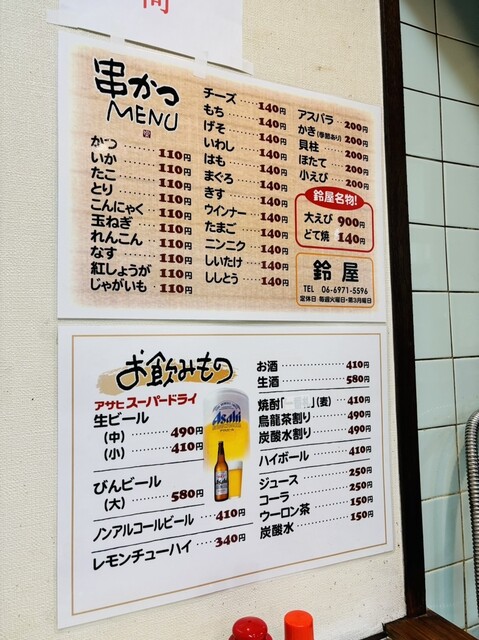 間
串かつ
MENU
かつ 110円
いか 110円
たこ 110円
とり 110円
こんにゃく 110円
玉ねぎ 110円
れんこん 110円
なす 110円
紅しょうが 110円
じゃがいも 110円
チーズ 140円
もち 140円
げそ 140円
いわし 140円
はも 140円
まぐろ 140円
きす 140円
ウインナー 140円
たまご 140円
ニンニク 140円
しいたけ 140円
ししとう 140円
アスパラ 200円
かき(季節あり) 200円
貝柱 200円
ほたて 200円
小えび 200円
鈴屋名物!
大えび 900円
どて焼 140円
鈴屋
TEL 06-6971-5596
定休日 毎週火曜日・第3月曜日
お飲みもの
アサヒ スーパードライ
生ビール
(中) 490円
(小) 410円
びんビール
(大) 580円
ノンアルコールビール 410円
レモンチューハイ 340円
Asahi
お酒 410円
生酒 580円
焼酎「一番札」(麦) 410円
烏龍茶割り 490円
炭酸水割り 490円
ハイボール 410円
ジュース 250円
コーラ 250円
ウーロン茶 150円
炭酸水 150円